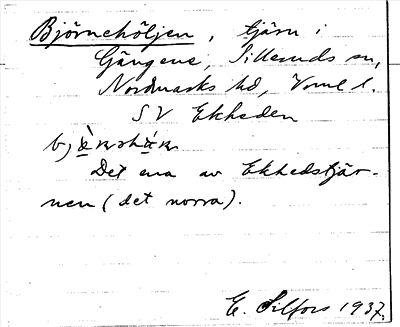 Björnehöljen, tjärn i
Gängene, Silleruds sn,
Nordmarks hd, Verml l.
SV Ekheden
Det ena av Ekhedstjär-
nen (det norra).
E. Silfors 1937.